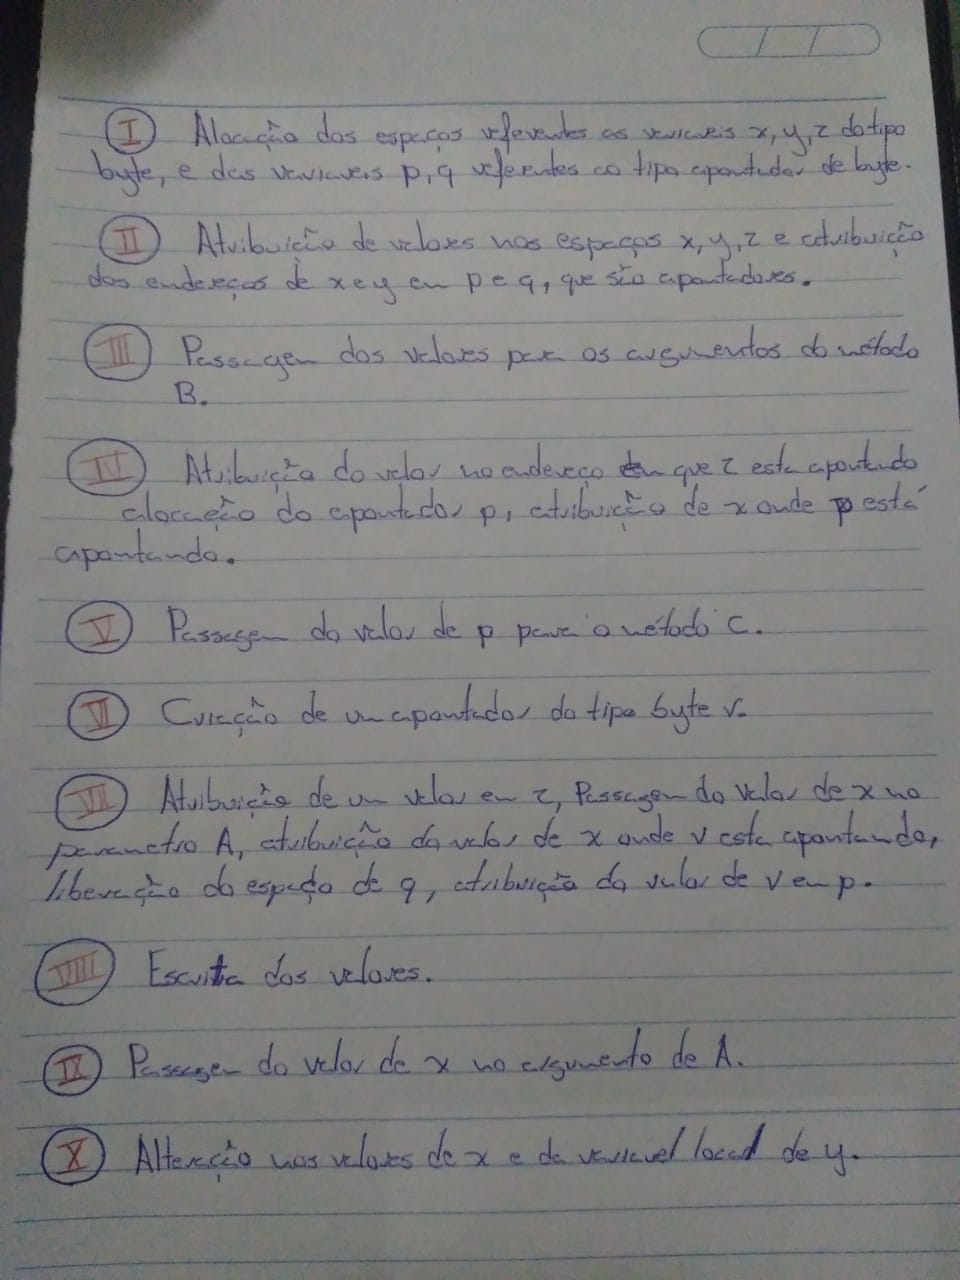 I Alocação dos espaços referentes as variaveis x, y, z do tipo
byte, e das variaveis p, q referentes ao tipo apontador de byte.
II Atribuição de valores nos espaços x, y, z e atribuição
dos endereços de x e y em p e q, que são apontadores.
III Passagem dos valores para os argumentos do método
B.
IV Atribuição do valor no endereço em que z esta apontando
alocação do apontador p, atribuição de x onde p está
apontando.
V Passagem do valor de p para o método C.
VI Criação de um apontador do tipo byte r.
VII Atribuição de um valor em z, Passagem do valor de x no
parametro A, atribuição do valor de x onde r esta apontando,
liberação do espaço de q, atribuição do valor de r em p.
VIII Escrita dos valores.
IX Passagem do valor de x no argumento de A.
X Alteração nos valores de x e da variavel local de y.